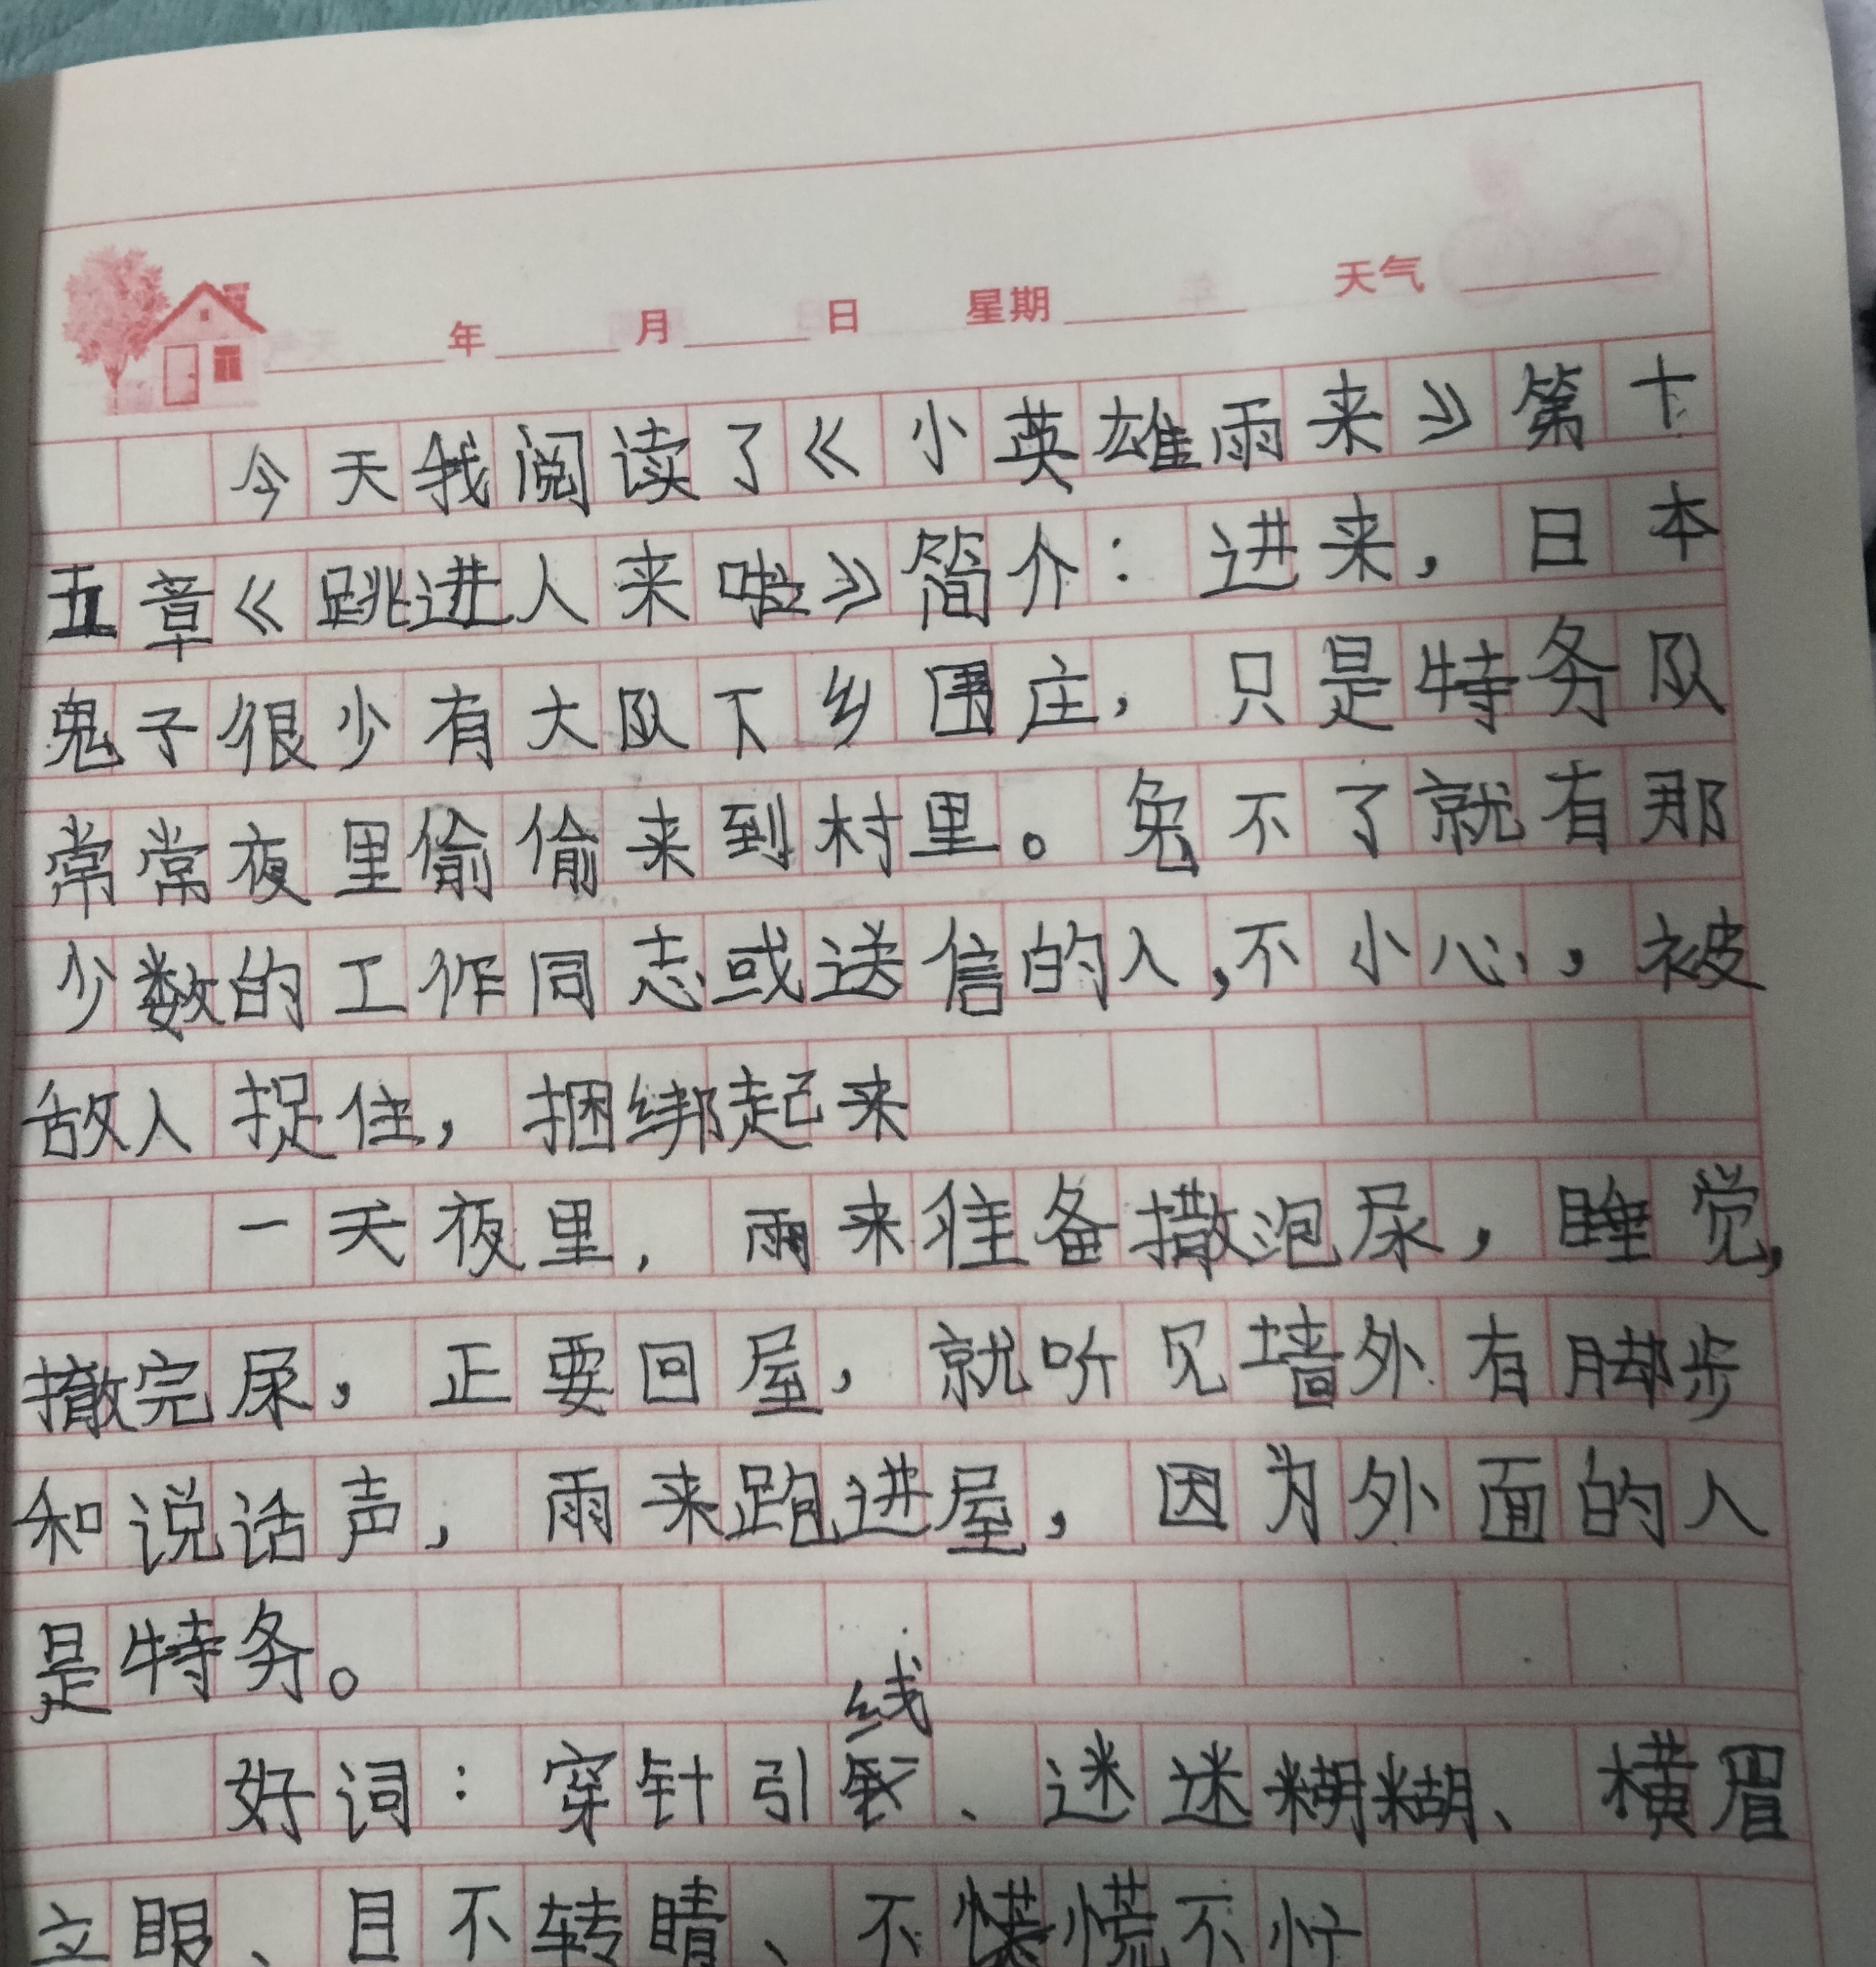 年 月 日 星期 天气
今天我阅读了《小英雄雨来》第十
五章《跳进人来啦》简介：进来，日本
鬼子很少有大队下乡围庄，只是特务队
常常夜里偷偷来到村里。免不了就有那
少数的工作同志或送信的人，不小心，被
敌人捉住，捆绑起来
一天夜里，雨来准备撒泡尿，睡觉，
撒完尿，正要回屋，就听见墙外有脚步
和说话声，雨来跑进屋，因为外面的人
是特务。
好词：穿针引线、迷迷糊糊、横眉
立眼、目不转睛、不慌不忙